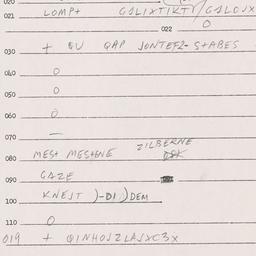 020
021 LOMP+ GALIXTIKTI/GALOJX
022 O
030 + QU QAP JONTEFZ- S+ABES
040 O
050 O
060 O
070 —
080 MES+ MES+ENE ZILBERNE
090 GAZE
100 KNEJT )-DI)DEM
110 O
019 + QINHOJZLAJXC3X